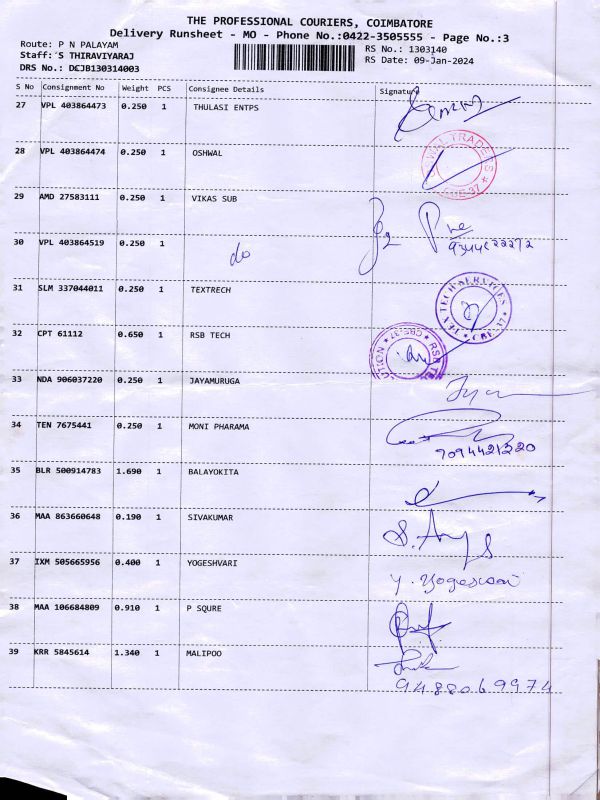 THE PROFESSIONAL COURIERS, COIMBATORE
Delivery Runsheet - MO - Phone No.:0422-3505555 - Page No.:3
Route: P N PALAYAM
RS No.: 1303140
Staff: S THIRAVIYARAJ
RS Date: 09-Jan-2024
DRS No.: DCJB130314003
S No Consignment No Weight PCS Consignee Details Signature
27 VPL 403864473 0.250 1 THULASI ENTPS
28 VPL 403864474 0.250 1 OSHWAL
29 AMD 27583111 0.250 1 VIKAS SUB
30 VPL 403864519 0.250 1 do
31 SLM 337044011 0.250 1 TEXTRECH
32 CPT 61112 0.650 1 RSB TECH
33 NDA 906037220 0.250 1 JAYAMURUGA
34 TEN 7675441 0.250 1 MONI PHARAMA
7094421220
35 BLR 500914783 1.690 1 BALAYOKITA
36 MAA 863660648 0.190 1 SIVAKUMAR
37 IXM 505665956 0.400 1 YOGESHVARI
38 MAA 106684809 0.910 1 P SQURE
39 KRR 5845614 1.340 1 MALIPOO
9488069974